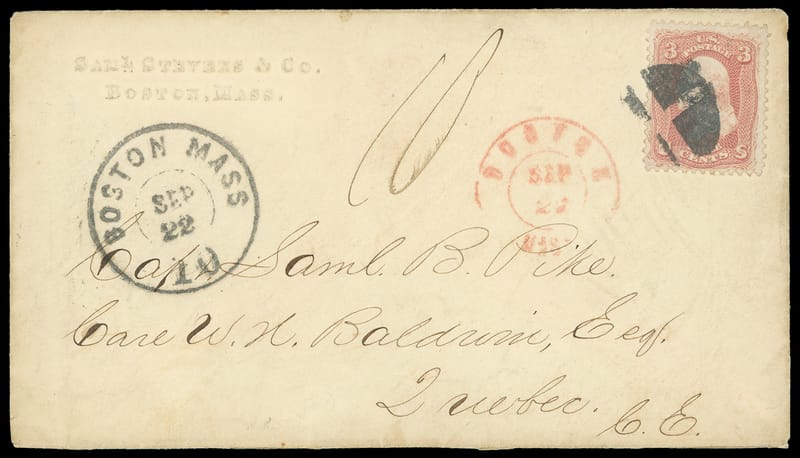 Saml Stevens & Co.
Boston, Mass.
BOSTON MASS
SEP
22
10
10
BOSTON
SEP
MASS
3 U.S. 3
POSTAGE
CENTS
Capt. Saml. B. Pike.
Care W. H. Baldwin, Esq.
Quebec. C. E.